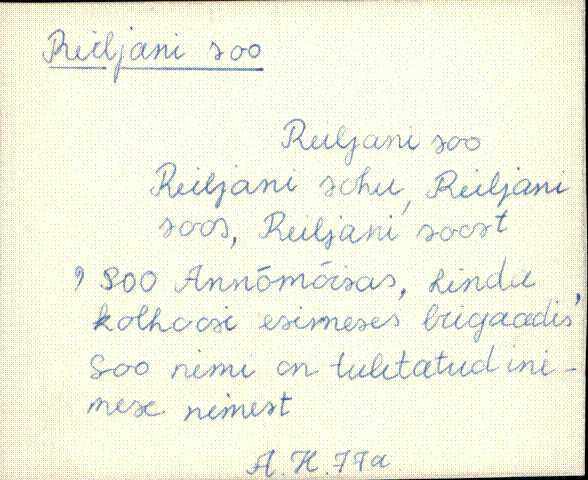 Reiljani soo
Reiljani soo
Reiljani sohu, Reiljani
soos, Reiljani soost
, soo Annõmõisas, Linda
kolhoosi esimeses brigaadis,
Soo nimi on tuletatud ini-
mese nimest
A. H. 77a